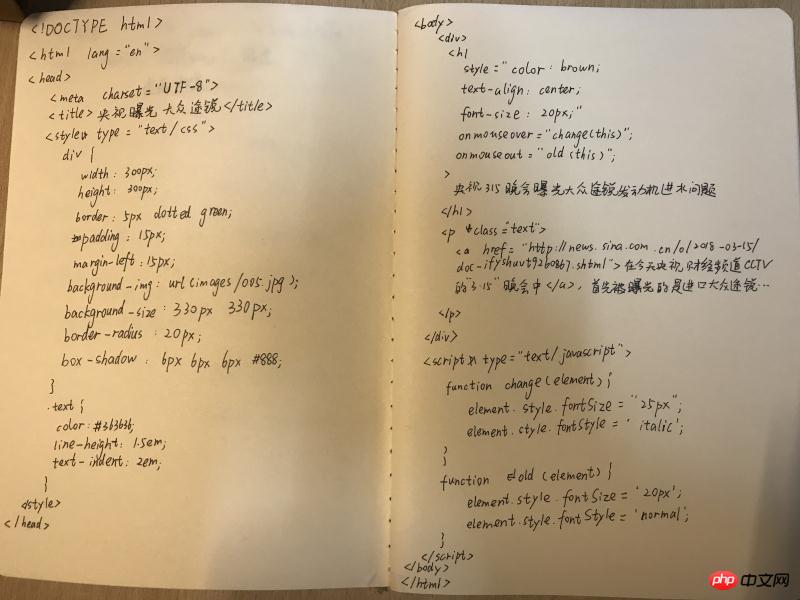 <!DOCTYPE html>
<html lang="en">
<head>
<meta charset="UTF-8">
<title>央视曝光大众途锐</title>
<style type="text/css">
div {
width: 300px;
height: 300px;
border: 5px dotted green;
padding: 15px;
margin-left: 15px;
background-img: url(images/005.jpg);
background-size: 330px 330px;
border-radius: 20px;
box-shadow: 6px 6px 6px #888;
}
.text {
color: #3b3b3b;
line-height: 1.5em;
text-indent: 2em;
}
<style>
</head>
<body>
<div>
<h1
style="color: brown;
text-align: center;
font-size: 20px;"
onmouseover="change(this)";
onmouseout="old(this)";
>
央视315晚会曝光大众途锐发动机进水问题
</h1>
<p class="text">
<a href="http://news.sina.com.cn/o/2018-03-15/
doc-ifyshuvt9260867.shtml">在今天央视财经频道CCTV
的"3·15"晚会中</a>,首先被曝光的是进口大众途锐…
</p>
</div>
<script type="text/javascript">
function change(element) {
element.style.fontSize = "25px";
element.style.fontStyle = 'italic';
}
}
function old(element) {
element.style.fontSize = '20px';
element.style.fontStyle = 'normal';
}
}
</script>
</body>
</html>
php 中文网